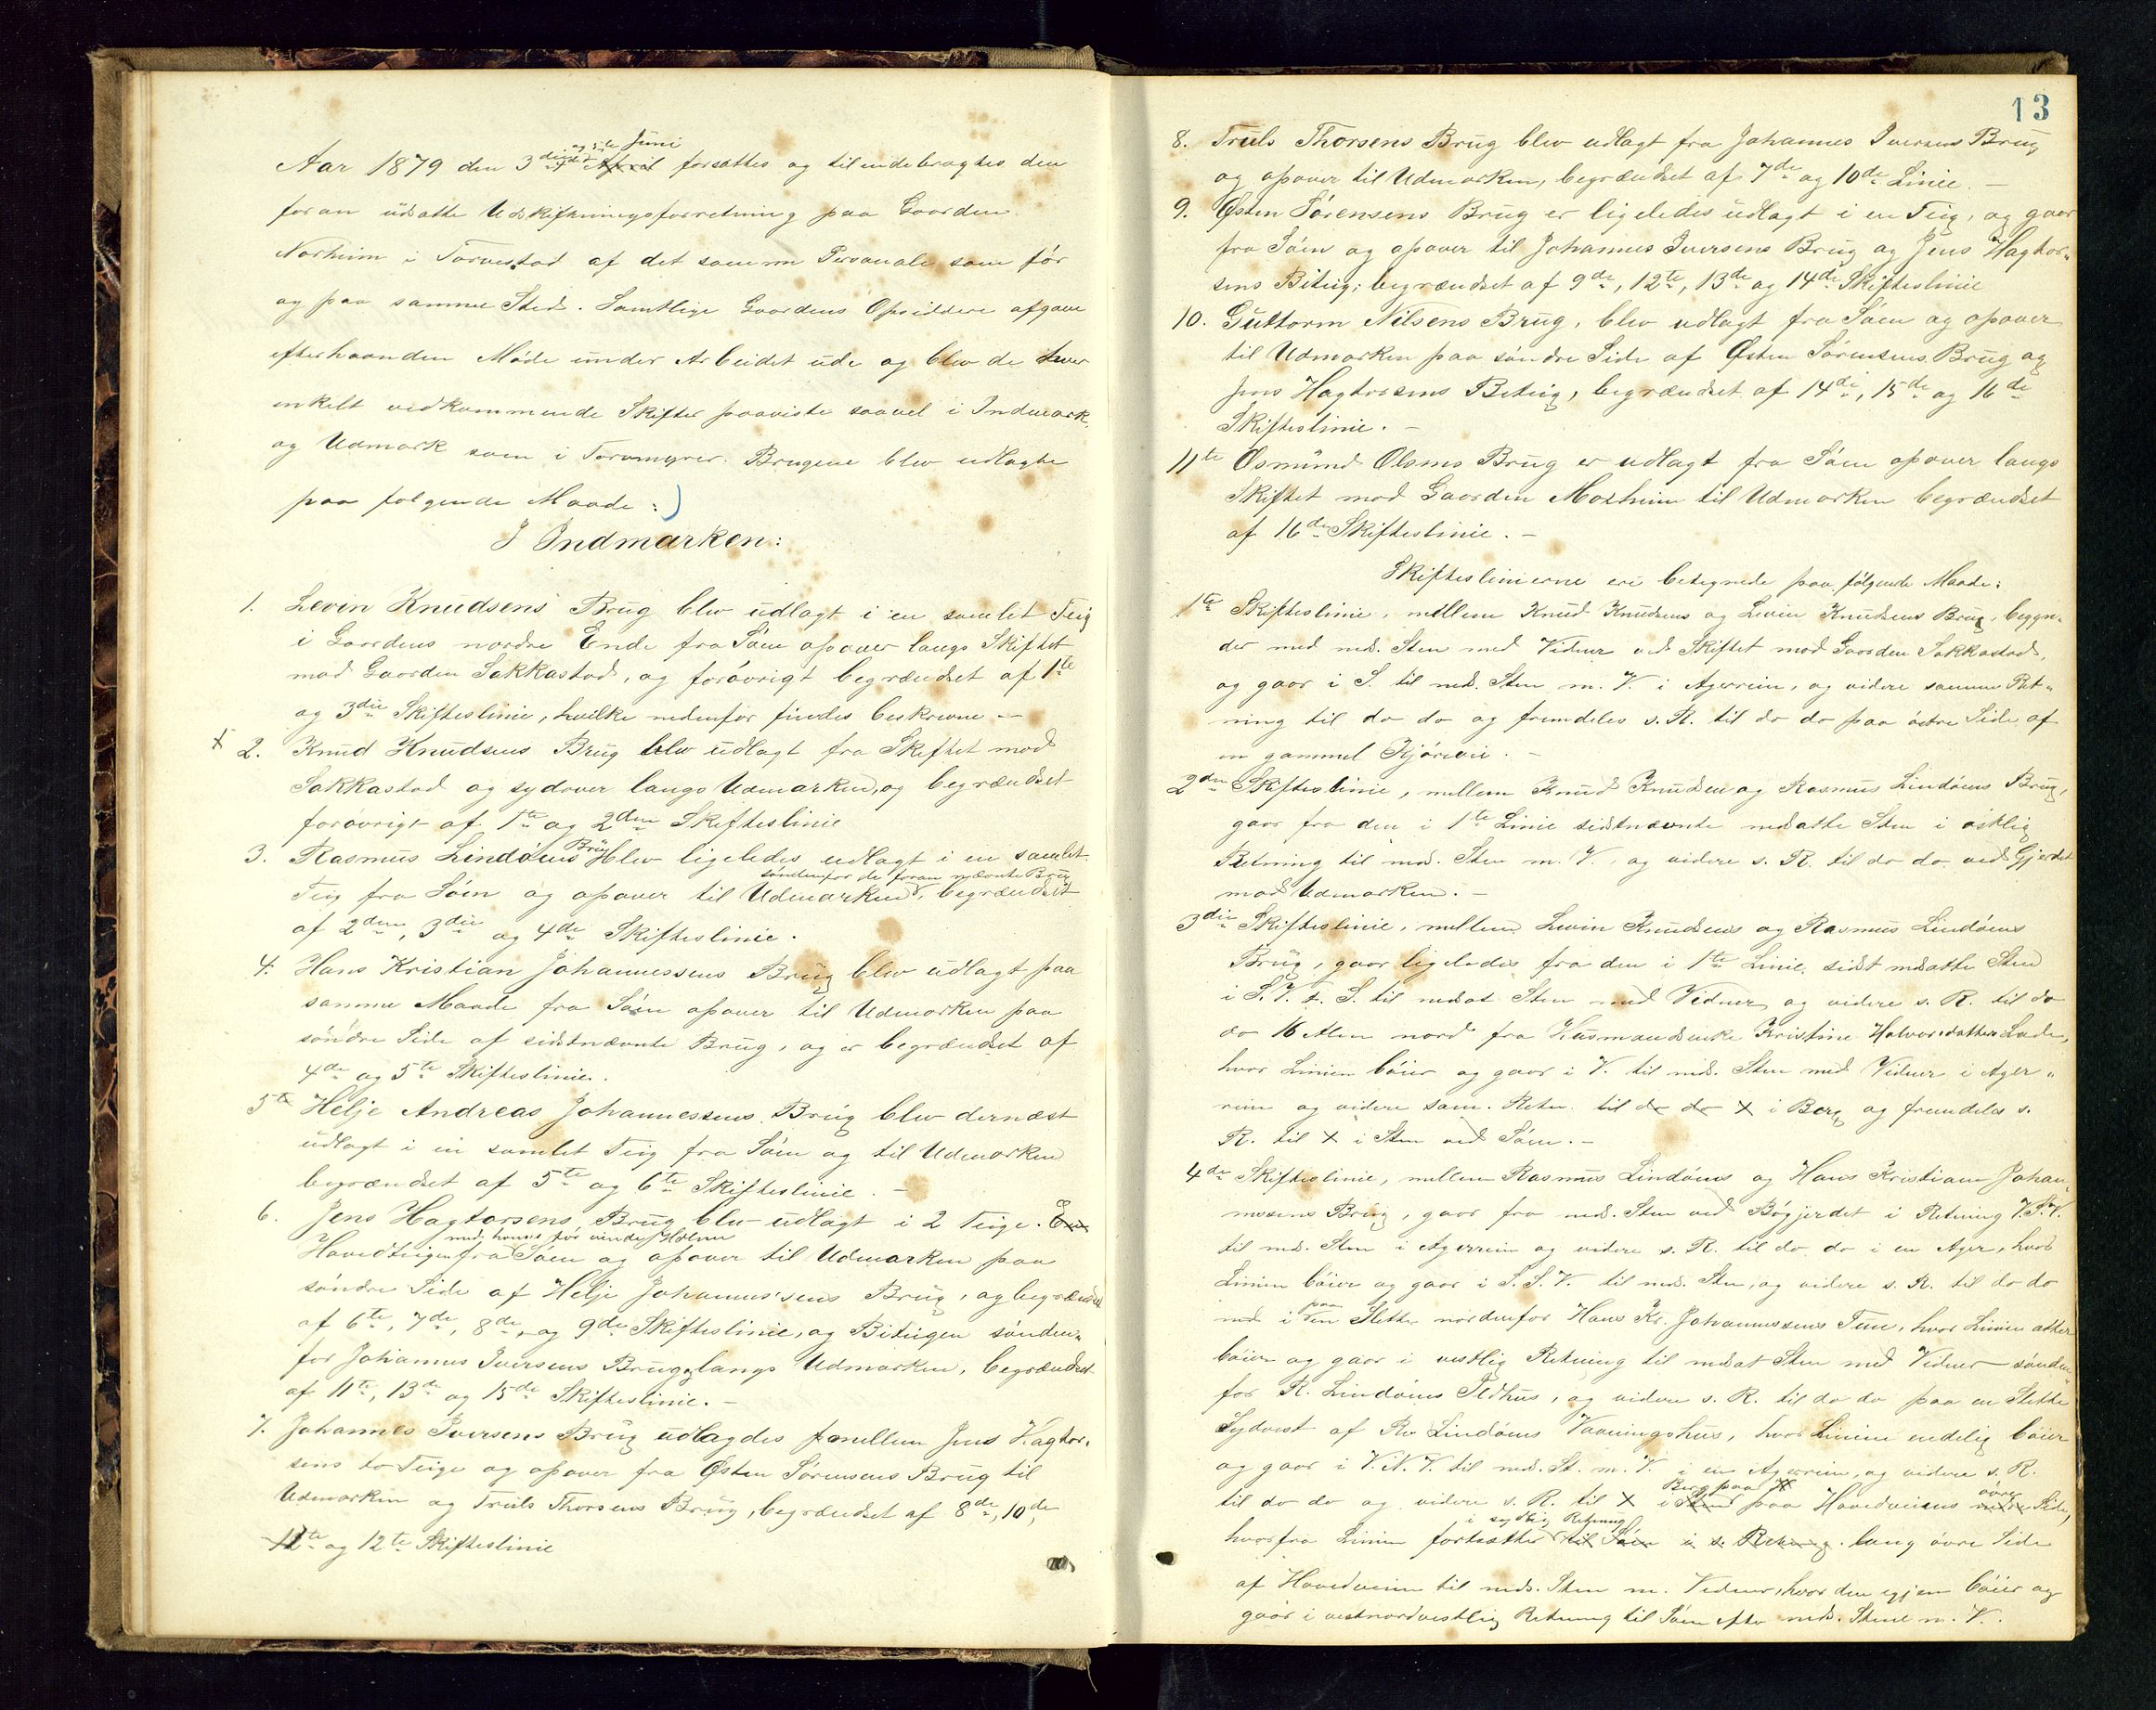 Aar 1879 den 3die og 4de Juni forsattes og tilendebragtes den
foran udsatte Udskiftningsforretning paa Gaarden
Norheim i Torvestad af det samme Personale som før
og paa samme Sted. Samtlige Gaardens Opsiddere afgave
efterhaanden Møde under Arbeidet ude og blev de hver
enkelt vedkommende Skifter paaviste saavel i Indmark,
og Udmark som i Torvmyrer. Brugene blev udlagte
paa følgende Maade:
I Indmarken:
1. Levin Knudsens Brug blev udlagt i en samlet Teig
i Gaardens nordre Ende fra Søen opover langs Skiftet
mod Gaarden Sakkastad, og forøvrigt begrændset af 1te
og 3die Skifteslinie, hvilke nedenfor findes beskrevne —
x 2. Knud Knudsens Brug blev udlagt fra Skiftet mod
Sakkastad og sydover langs Udmarken, og begrændset
forøvrigt af 1te og 2den Skifteslinie
3. Rasmus Lindøens Brug blev ligeledes udlagt i en samlet
søndenfor de foran nævnte Brug
Teig fra Søen og opover til Udmarken, begrændset
af 2den, 3die og 4de Skifteslinie.
4. Hans Kristian Johannessens Brug blev udlagt paa
samme Maade fra Søen opover til Udmarken paa
søndre Side af sidstnævnte Brug, og er begrændset af
4de og 5te Skifteslinie.
5te Helje Andreas Johannessens Brug blev dernæst
udlagt i en samlet Teig fra Søen og til Udmarken
begrændset af 5te og 6te Skifteslinie. —
6. Jens Hagtorsens Brug blev udlagt i 2 Teige. En
Hovedteigen fra Søen og opover til Udmarken paa
søndre Side af Helje Johannes'sens Brug, og begrændset
af 6te, 7de, 8de, og 9de Skifteslinie, og Biteigen sønden-
for Johannes Iversens Brug langs Udmarken, begrændset
af 11te, 13de og 15de Skifteslinie. —
7. Johannes Iversens Brug udlagdes mellem Jens Hagtor-
sens to Teige og opover fra Østen Sørensens Brug til
Udmarken og Truls Thorsens Brug, begrændset af 8de, 10de,
11te og 12te Skifteslinie
13
8. Truls Thorsens Brug blev udlagt fra Johannes Iversens Brug
og opover til Udmarken, begrændset af 7de og 10de Linie. —
9. Østen Sørensens Brug er ligeledes udlagt i en Teig, og gaar
fra Søen og opover til Johannes Iversens Brug og Jens Hagtor-
sens Biteig; begrændset af 9de, 12te, 13de og 14de Skifteslinie
10. Guttorm Nilsens Brug, blev udlagt fra Søen og opover
til Udmarken paa søndre Side af Østen Sørensens Brug og
Jens Hagtorsens Biteig, begrændset af 14de, 15de og 16de
Skifteslinie. —
11te Osmund Olsens Brug er udlagt fra Søen opover langs
Skiftet mod Gaarden Moxheim til Udmarken begrændset
af 16de Skifteslinie. —
Skifteslinierne ere betegnede paa følgende Maade:
1te Skifteslinie, mellem Knud Knudsens og Levin Knudsens Brug, begyn-
der med neds. Sten med Vidner ved Skiftet mod Gaarden Sakkastad,
og gaar i S. til neds. Sten m. V. i Agerrein, og videre samme Ret-
ning til do do og fremdeles s. R. til do do paa østre Side af
en gammel Kjørevei. —
2den Skifteslinie, mellem Knud Knudsen og Rasmus Lindøens Brug,
gaar fra den i 1te Linie sidstnævnte nedsatte Sten i østlig
Retning til neds. Sten m. V. og videre s. R. til do do ved Gjerdet
mod Udmarken. —
3die Skifteslinie, mellem Levin Knudsens og Rasmus Lindøens
Brug, gaar ligeledes fra den i 1te Linie sidst nedsatte Sten
i S. V. t. S. til nedsat Sten med Vidner og videre s. R. til do
do 16 Alen nord fra Husmandsenke Kristine Halvorsdatters Lade,
hvor Linien bøier og gaar i V. til neds. Sten med Vidner i Ager-
rein og videre sam. Retn. til do do x i Berg og fremdeles s.
R. til x i Sten ved Søen. —
4de Skifteslinie, mellem Rasmus Lindøens og Hans Kristian Johan-
nessens Brug, gaar fra neds. Sten ved Bøgjerdet i Retning V. S. V.
til neds. Sten i Agerrein og videre s. R. til do do i en Ager, hvor
Linien bøier og gaar i S. S. V. til neds. Sten, og videre s. R. til do do
ned i paa en Slette nordenfor Hans Kr. Johannessens Tun, hvor Linien atter
bøier og gaar i vestlig Retning til nedsat Sten med Vidner sønden-
for R. Lindøens Ildhus, og videre s. R. til do do paa en Slette
Sydvest af R. Lindøens Vaaningshus, hvor Linien endelig bøier
og gaar i V. N. V. til neds. St. m. V. i en Agerrein, og videre s. R.
til do do og videre s. R. til x i Berg paa Hovedveiens øvre Side,
i sydlig Retning
hvorfra Linien fortsætter til Søen i s. Retning. lang øvre Side
af Hovedveien til neds. Sten m. Vidner, hvor den igjen bøier og
gaar i vestnordvestlig Retning til Søen efter neds. Stene m. V.